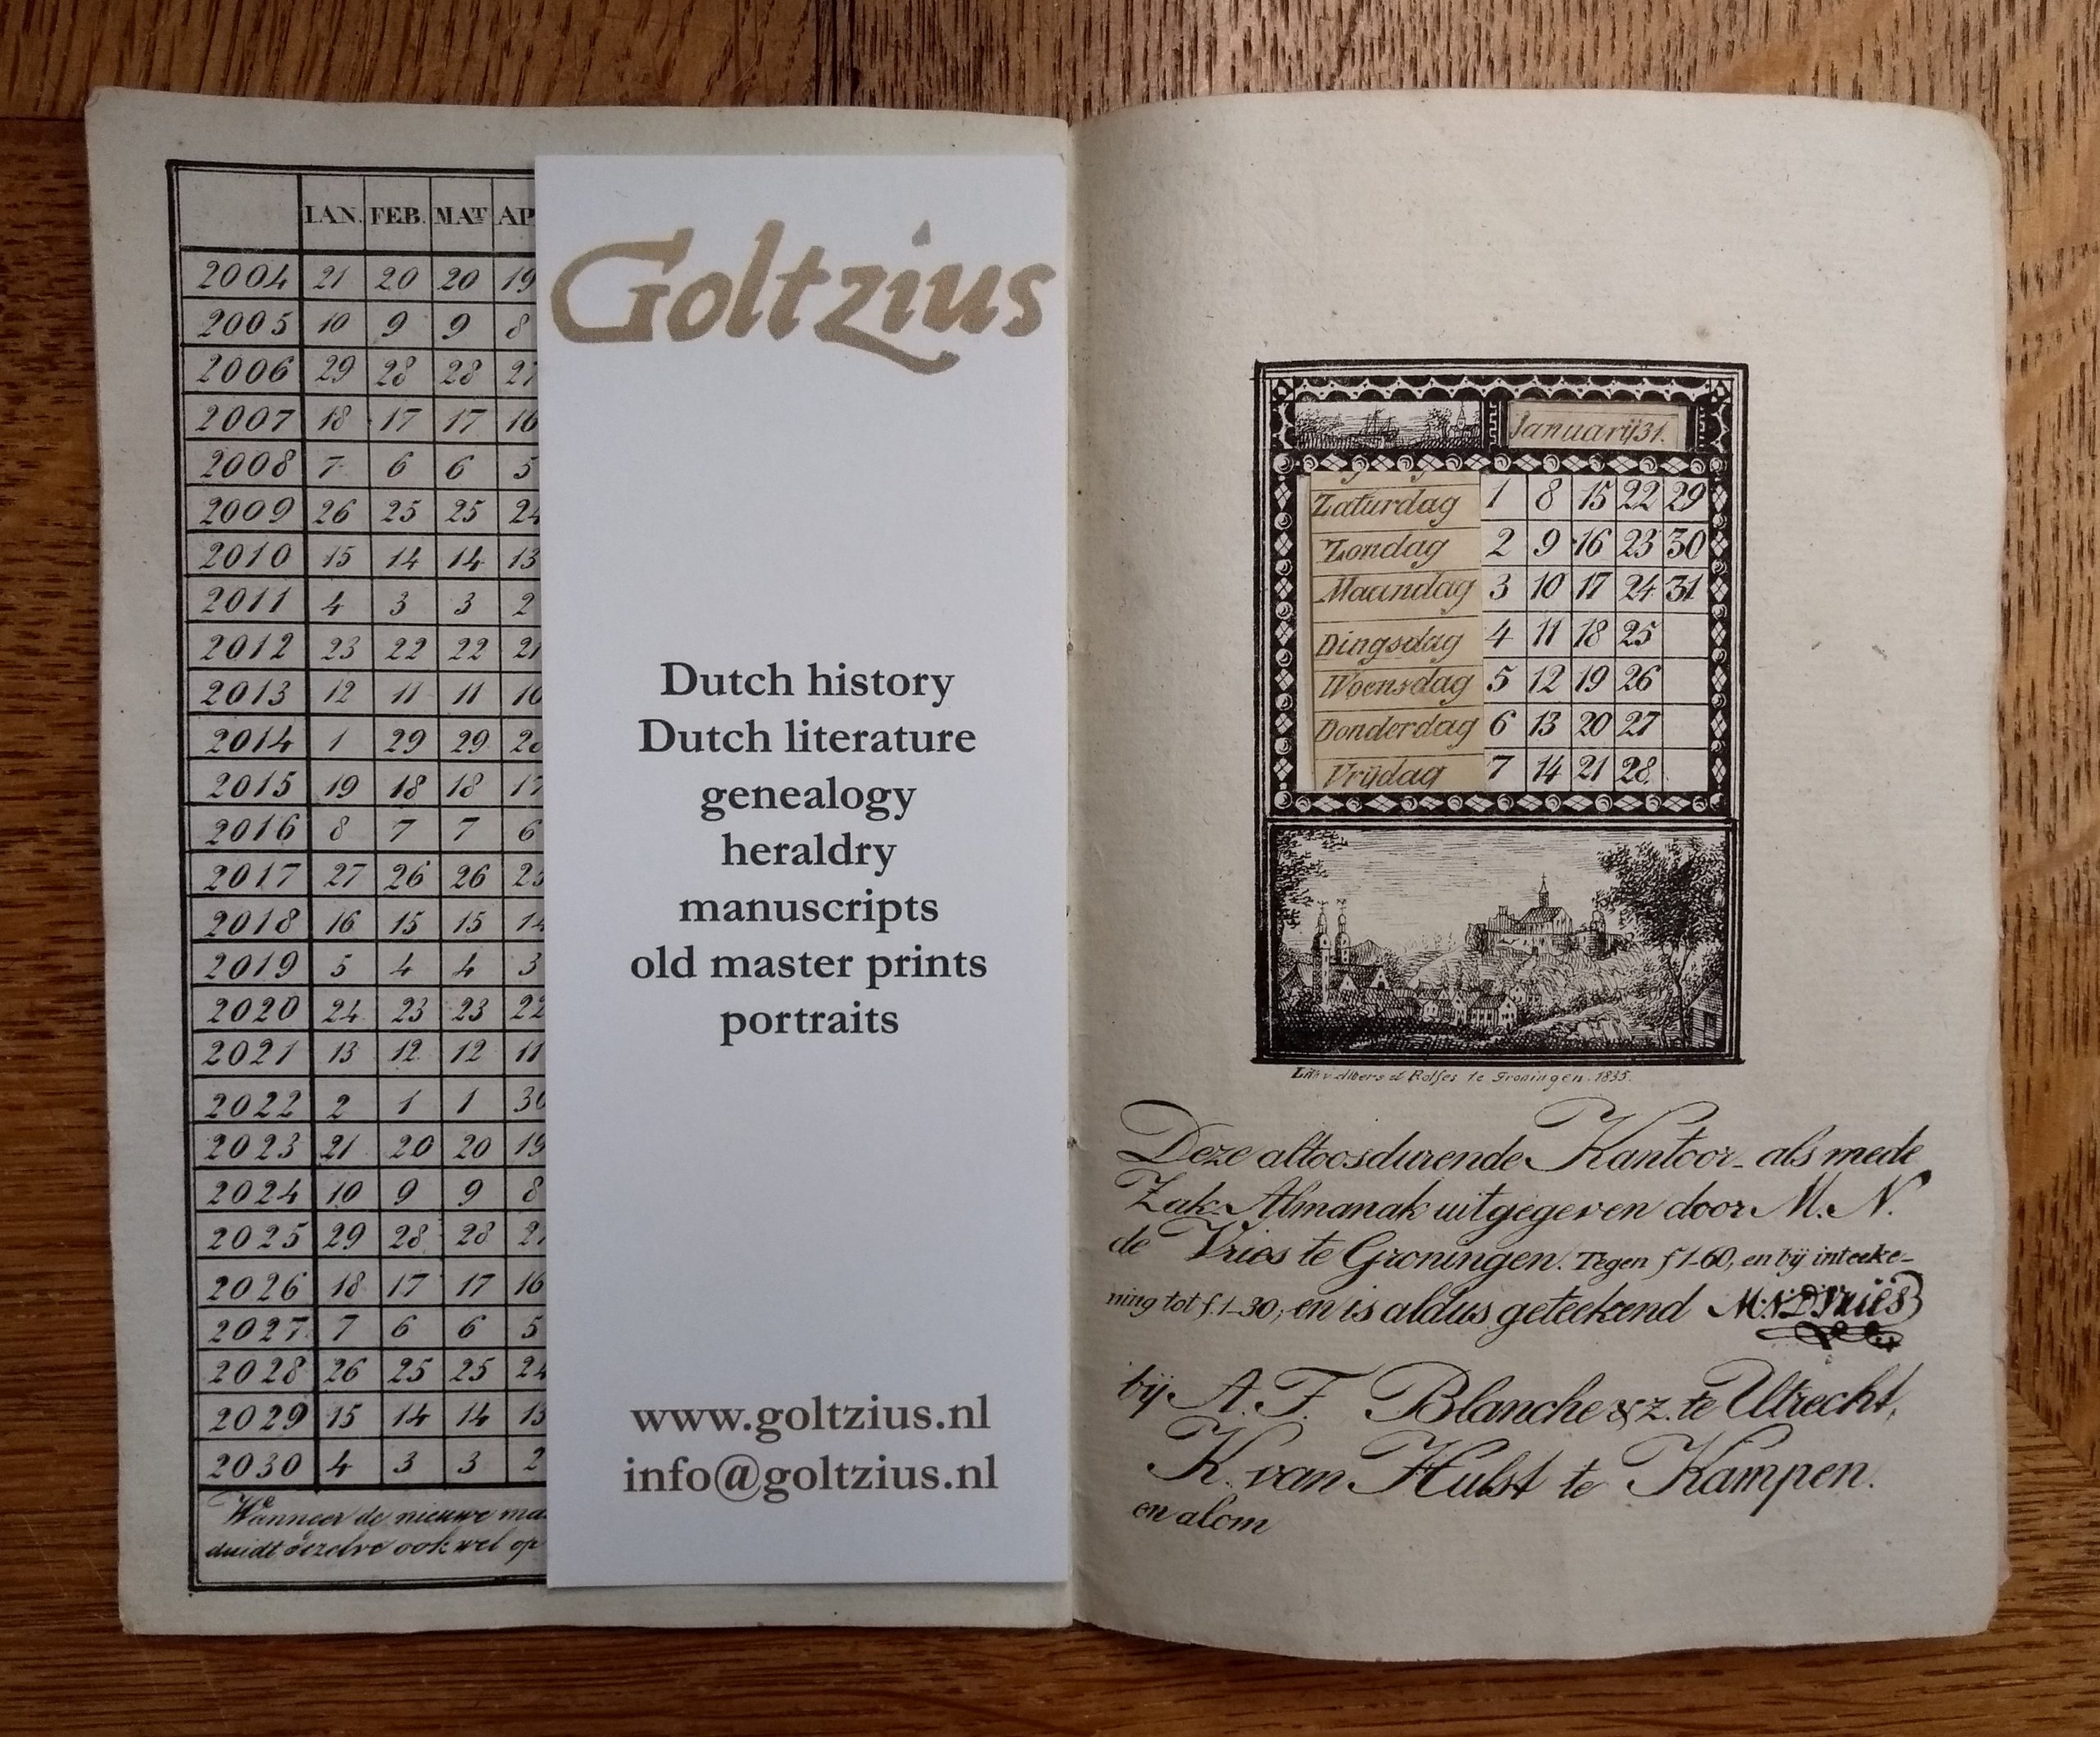 IAN. FEB. MAT AP
2004 21 20 20 19
2005 10 9 9 8
2006 29 28 28 27
2007 18 17 17 16
2008 7 6 6 5
2009 26 25 25 24
2010 15 14 14 13
2011 4 3 3 2
2012 23 22 22 21
2013 12 11 11 10
2014 1 29 29
2015 19 18 18 17
2016 8 7 7 6
2017 27 26 26
2018 16 15 15 14
2019 5 4 4 3
2020 24 23 23 22
2021 13 12 12 11
2022 2 1 1 30
2023 21 20 20 19
2024 10 9 9 8
2025 29 28 28
2026 18 17 17 16
2027 7 6 6 5
2028 26 25 25 24
2029 15 14 14 13
2030 4 3 3 2
Wanneer de nieuwe ma
duidt dezelve ook wel op
Goltzius
Dutch history
Dutch literature
genealogy
heraldry
manuscripts
old master prints
portraits
www.goltzius.nl
info@goltzius.nl
Januarij 31.
Zaturdag 1 8 15 22 29
Zondag 2 9 16 23 30
Maandag 3 10 17 24 31
Dingsdag 4 11 18 25
Woensdag 5 12 19 26
Donderdag 6 13 20 27
Vrijdag 7 14 21 28
Rolfes te Groningen. 1835.
Deze altoosdurende Kantoor- als mede
Zak-Almanak uitgegeven door M. N.
de Vries te Groningen. Tegen f 1-60, en bij inteeke-
ning tot f. 1-30, en is aldus geteekend M. N. D Vries
bij A. F. Blanche & z. te Utrecht,
K. van Hulst te Kampen.
en alom